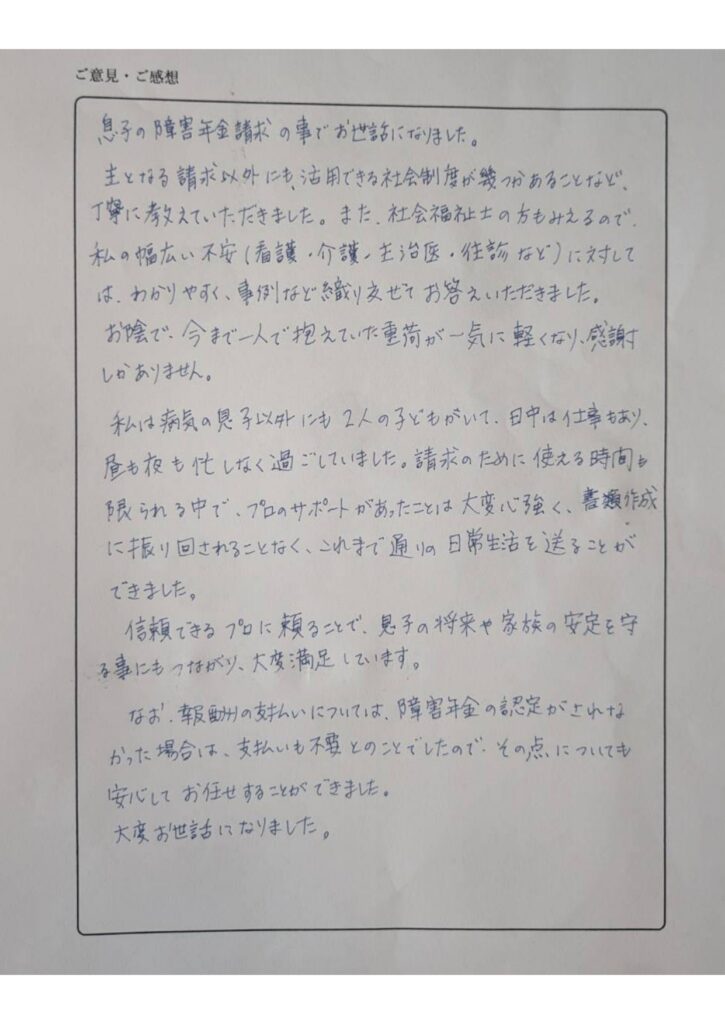 ご意見・ご感想
息子の障害年金請求の事でお世話になりました。
主となる請求以外にも、活用できる社会制度が幾つかあることなど、
丁寧に教えていただきました。また、社会福祉士の方もみえるので、
私の幅広い不安(看護・介護・主治医・往診など)に対して
は、わかりやすく、事例など織り交ぜてお答えいただきました。
お陰で、今まで一人で抱えていた重荷が一気に軽くなり、感謝
しかありません。
私は病気の息子以外にも2人の子どもがいて、日中は仕事もあり、
昼も夜も忙しなく過ごしていました。請求のために使える時間も
限られる中で、プロのサポートがあったことは大変心強く、書類作成
に振り回されることなく、これまで通りの日常生活を送ることが
できました。
信頼できるプロに頼ることで、息子の将来や家族の安定を守
る事にもつながり、大変満足しています。
なお、報酬の支払いについては、障害年金の認定がされな
かった場合は、支払いも不要とのことでしたので、その点についても
安心してお任せすることができました。
大変お世話になりました。